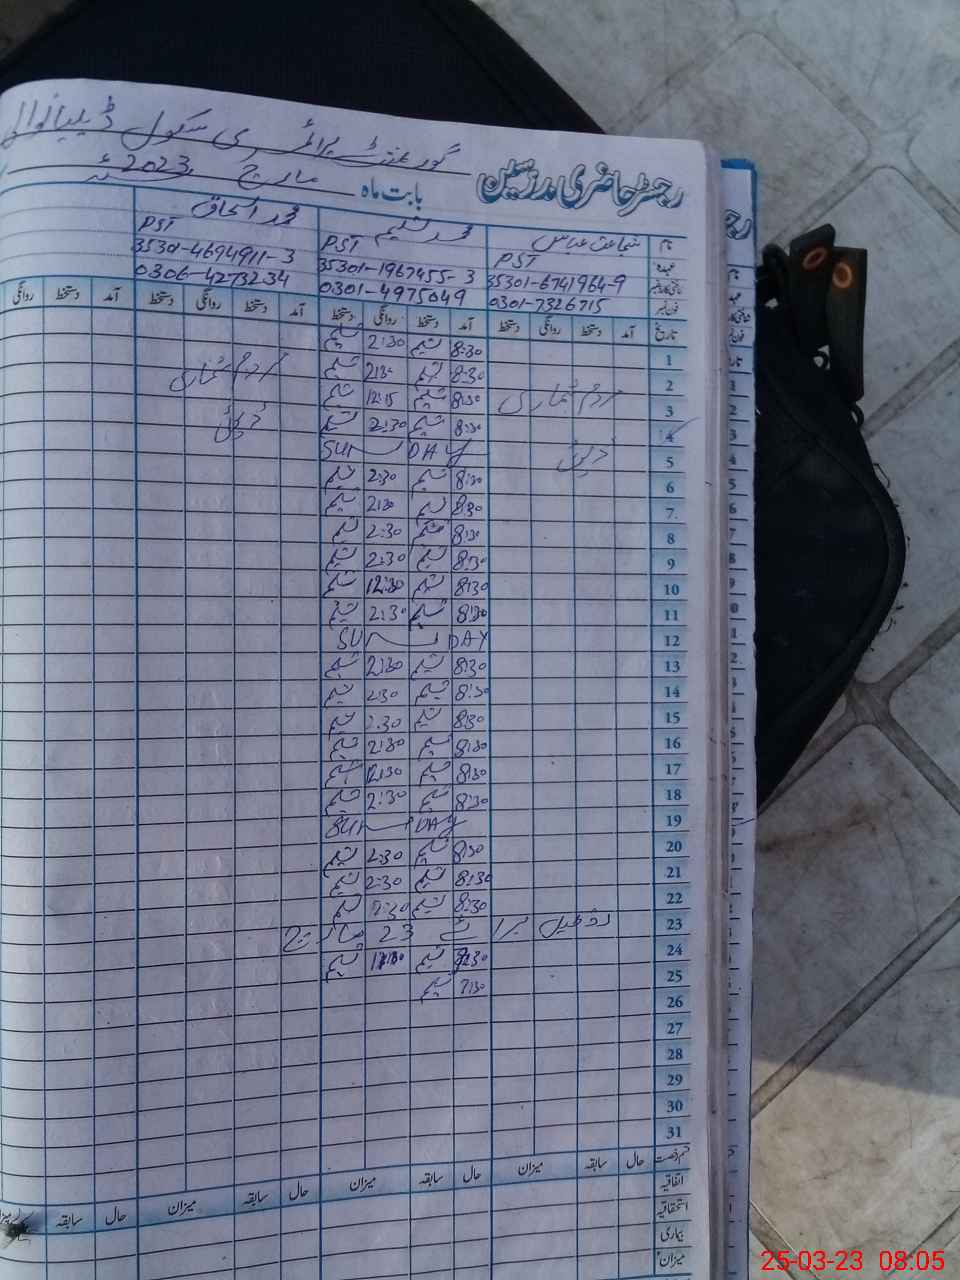 گورنمنٹ پرائمری سکول
رجسٹر حاضری مدرسین بابت ماہ مارچ 2023ء
نام شجاعت عباس محمد نسیم محمد اسحاق
عہدہ PST PST PST
شناختی کارڈ نمبر 35301-6741964-9 35301-1967455-3 35301-4694911-3
فون نمبر 0301-7326715 0301-4975049 0306-4273234
تاریخ آمد دستخط روانگی دستخط آمد دستخط روانگی دستخط آمد دستخط روانگی دستخط آمد دستخط روانگی
1 8:30 نسیم 2:30 نسیم
2 8:30 نسیم 2:30 نسیم مردم شماری
3 مردم شماری 8:30 نسیم 12:15 نسیم
4 8:30 نسیم 2:30 نسیم
5 SUN DAY
6 8:30 نسیم 2:30 نسیم
7 8:30 نسیم 2:30 نسیم
8 8:30 نسیم 2:30 نسیم
9 8:30 نسیم 2:30 نسیم
10 8:30 نسیم 12:30 نسیم
11 8:30 نسیم 2:30 نسیم
12 SUN DAY
13 8:30 نسیم 2:30 نسیم
14 8:30 نسیم 2:30 نسیم
15 8:30 نسیم 2:30 نسیم
16 8:30 نسیم 2:30 نسیم
17 8:30 نسیم 12:30 نسیم
18 8:30 نسیم 2:30 نسیم
19 SUN DAY
20 8:30 نسیم 2:30 نسیم
21 8:30 نسیم 2:30 نسیم
22 8:30 نسیم 2:30 نسیم
23 تعطیل برائے 23 مارچ
24 نسیم نسیم
25 7:30 نسیم
26
27
28
29
30
31
قسم رخصت حال سابقہ میزان حال سابقہ میزان حال سابقہ میزان حال سابقہ
اتفاقیہ
استحقاقیہ
بیماری
میزان
25-03-23 08:05